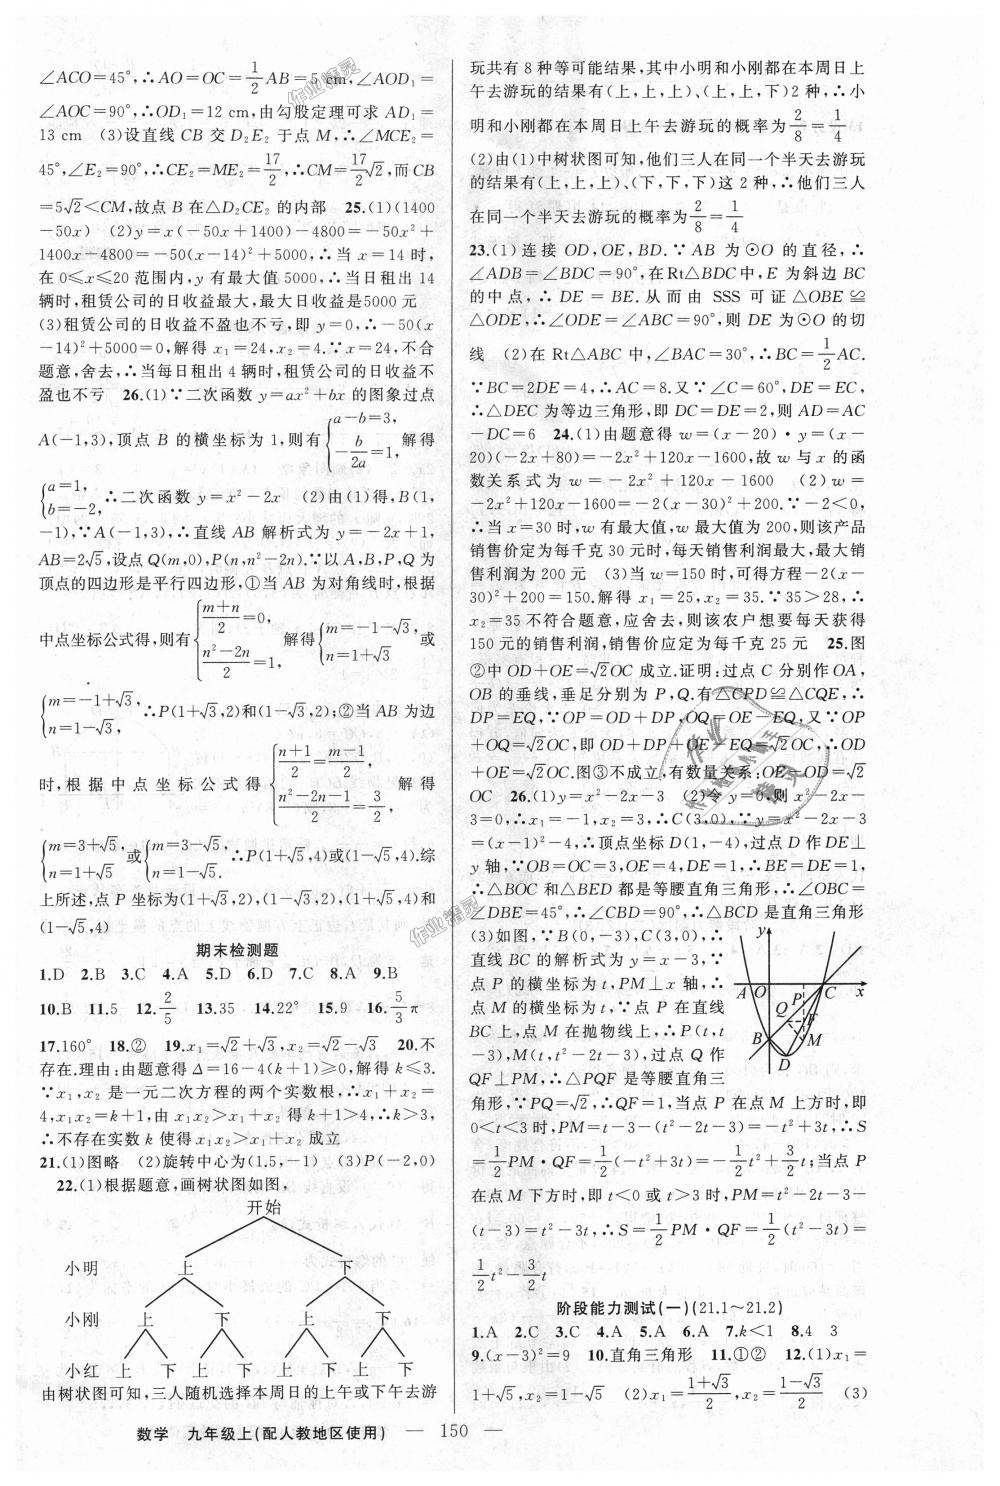 ∠ACO=45°,∴AO=OC=1/2AB=5 cm,∠AOD₁=
∠AOC=90°,∴OD₁=12 cm,由勾股定理可求 AD₁=
13 cm (3)设直线 CB 交 D₂E₂ 于点 M,∴∠MCE₂=
45°,∠E₂=90°,∴CE₂=ME₂=17/2,∴CM=17/2√2,而 CB
=5√2<CM,故点 B 在△D₂CE₂ 的内部 25.(1)(1400
-50x) (2)y=x(-50x+1400)-4800=-50x²+
1400x-4800=-50(x-14)²+5000,∴当 x=14 时,
在 0≤x≤20 范围内,y 有最大值 5000,∴当日租出 14
辆时,租赁公司的日收益最大,最大日收益是5000 元
(3)租赁公司的日收益不盈也不亏,即 y=0,∴-50(x
-14)²+5000=0,解得 x₁=24,x₂=4.∵x=24,不合
题意,舍去,∴当每日租出 4 辆时,租赁公司的日收益不
盈也不亏 26.(1)∵二次函数 y=ax²+bx 的图象过点
A(-1,3),顶点 B 的横坐标为 1,则有{a-b=3, -b/2a=1, 解得
{a=1, b=-2, ∴二次函数 y=x²-2x (2)由(1)得,B(1,
-1),∵A(-1,3),∴直线 AB 解析式为 y=-2x+1,
AB=2√5,设点 Q(m,0),P(n,n²-2n).∵以 A,B,P,Q 为
顶点的四边形是平行四边形,①当 AB 为对角线时,根据
中点坐标公式得,则有{(m+n)/2=0, (n²-2n)/2=1, 解得{m=-1-√3, n=1+√3 或
{m=-1+√3, n=1-√3, ∴P(1+√3,2)和(1-√3,2);②当 AB 为边
时,根据中点坐标公式得{(n+1)/2=(m-1)/2, (n²-2n-1)/2=3/2, 解得
{m=3+√5, n=1+√5 或{m=3-√5, n=1-√5. ∴P(1+√5,4)或(1-√5,4).综
上所述,点 P 坐标为(1+√3,2),(1-√3,2),(1+√5,4)和
(1-√5,4)
期末检测题
1.D 2.B 3.C 4.A 5.D 6.D 7.C 8.A 9.B
10.B 11.5 12.2/5 13.35 14.22° 15.9 16.5/3π
17.160° 18.② 19.x₁=√2+√3,x₂=√2-√3 20.不
存在.理由:由题意得 Δ=16-4(k+1)≥0,解得 k≤3.
∵x₁,x₂ 是一元二次方程的两个实数根,∴x₁+x₂=
4,x₁x₂=k+1,由 x₁x₂>x₁+x₂ 得 k+1>4,∴k>3,
∴不存在实数 k 使得 x₁x₂>x₁+x₂ 成立
21.(1)图略 (2)旋转中心为(1.5,-1) (3)P(-2,0)
22.(1)根据题意,画树状图如图,
开始
小明 上 下
小刚 上 下 上 下
小红 上 下 上 下 上 下 上 下
由树状图可知,三人随机选择本周日的上午或下午去游
玩共有 8 种等可能结果,其中小明和小刚都在本周日上
午去游玩的结果有(上,上,上)、(上,上,下)2 种,∴小
明和小刚都在本周日上午去游玩的概率为2/8=1/4
(2)由(1)中树状图可知,他们三人在同一个半天去游玩
的结果有(上,上,上)、(下,下,下)这 2 种,∴他们三人
在同一个半天去游玩的概率为2/8=1/4
23.(1)连接 OD,OE,BD.∵AB 为⊙O 的直径,∴
∠ADB=∠BDC=90°,在Rt△BDC中,E 为斜边 BC
的中点,∴DE=BE.从而由 SSS 可证△OBE≌
△ODE,∴∠ODE=∠ABC=90°,则 DE 为⊙O 的切
线 (2)在 Rt△ABC 中,∠BAC=30°,∴BC=1/2AC.
∵BC=2DE=4,∴AC=8.又∵∠C=60°,DE=EC,
∴△DEC 为等边三角形,即 DC=DE=2,则 AD=AC
-DC=6 24.(1)由题意得 w=(x-20)·y=(x-
20)(-2x+80)=-2x²+120x-1600,故 w 与 x 的函
数关系式为 w=-2x²+120x-1600 (2)w=
-2x²+120x-1600=-2(x-30)²+200.∵-2<0,
∴当 x=30 时,w 有最大值,w 最大值为 200,则该产品
销售价定为每千克 30 元时,每天销售利润最大,最大销
售利润为 200 元 (3)当 w=150 时,可得方程-2(x-
30)²+200=150.解得 x₁=25,x₂=35.∵35>28,∴
x₂=35 不符合题意,应舍去,则该农户想要每天获得
150 元的销售利润,销售价应定为每千克 25 元 25.图
②中 OD+OE=√2OC 成立.证明:过点 C 分别作 OA,
OB 的垂线,垂足分别为 P,Q.有△CPD≌△CQE,∴
DP=EQ,∵OP=OD+DP,OQ=OE-EQ,又∵OP
+OQ=√2OC,即 OD+DP+OE-EQ=√2OC,∴OD
+OE=√2OC.图③不成立,有数量关系:OE-OD=√2
OC 26.(1)y=x²-2x-3 (2)令 y=0,则 x²-2x-
3=0,∴x₁=-1,x₂=3,∴C(3,0),∵y=x²-2x-3
=(x-1)²-4,∴顶点坐标 D(1,-4),过点 D 作 DE⊥
y 轴,∵OB=OC=3,OE=4,DE=1,∴BE=DE=1,
∴△BOC 和△BED 都是等腰直角三角形,∴∠OBC=
∠DBE=45°,∴∠CBD=90°,∴△BCD 是直角三角形
(3)如图,∵B(0,-3),C(3,0),∴
直线 BC 的解析式为 y=x-3,∵
点 P 的横坐标为 t,PM⊥x 轴,∴
点 M 的横坐标为 t,∵点 P 在直线
BC 上,点 M 在抛物线上,∴P(t,t
-3),M(t,t²-2t-3),过点 Q 作
QF⊥PM,∴△PQF 是等腰直角三
角形,∵PQ=√2,∴QF=1,当点 P 在点 M 上方时,即
0<t<3 时,PM=t-3-(t²-2t-3)=-t²+3t,∴S
=1/2PM·QF=1/2(-t²+3t)=-1/2t²+3/2t;当点 P
在点 M 下方时,即 t<0 或 t>3 时,PM=t²-2t-3-
(t-3)=t²-3t,∴S=1/2PM·QF=1/2(t²-3t)=
1/2t²-3/2t
y
A O P C x
Q F
B M
D
阶段能力测试(一)(21.1~21.2)
1.A 2.C 3.C 4.A 5.A 6.A 7.k<1 8.4 3
9.(x-3)²=9 10.直角三角形 11.①② 12.(1)x₁=
1+√5,x₂=1-√5 (2)x₁=(1+√3)/2,x₂=(1-√3)/2 (3)
数学 九年级上(配人教地区使用) — 150 —
作业精灵
作业精灵